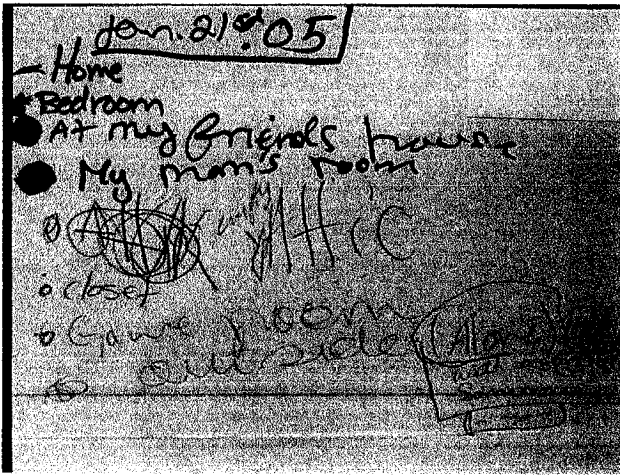 Jan. 21st. 05
- Home
Bedroom
At my friends house
My mom's room
my Attic
closet
Game room
outside